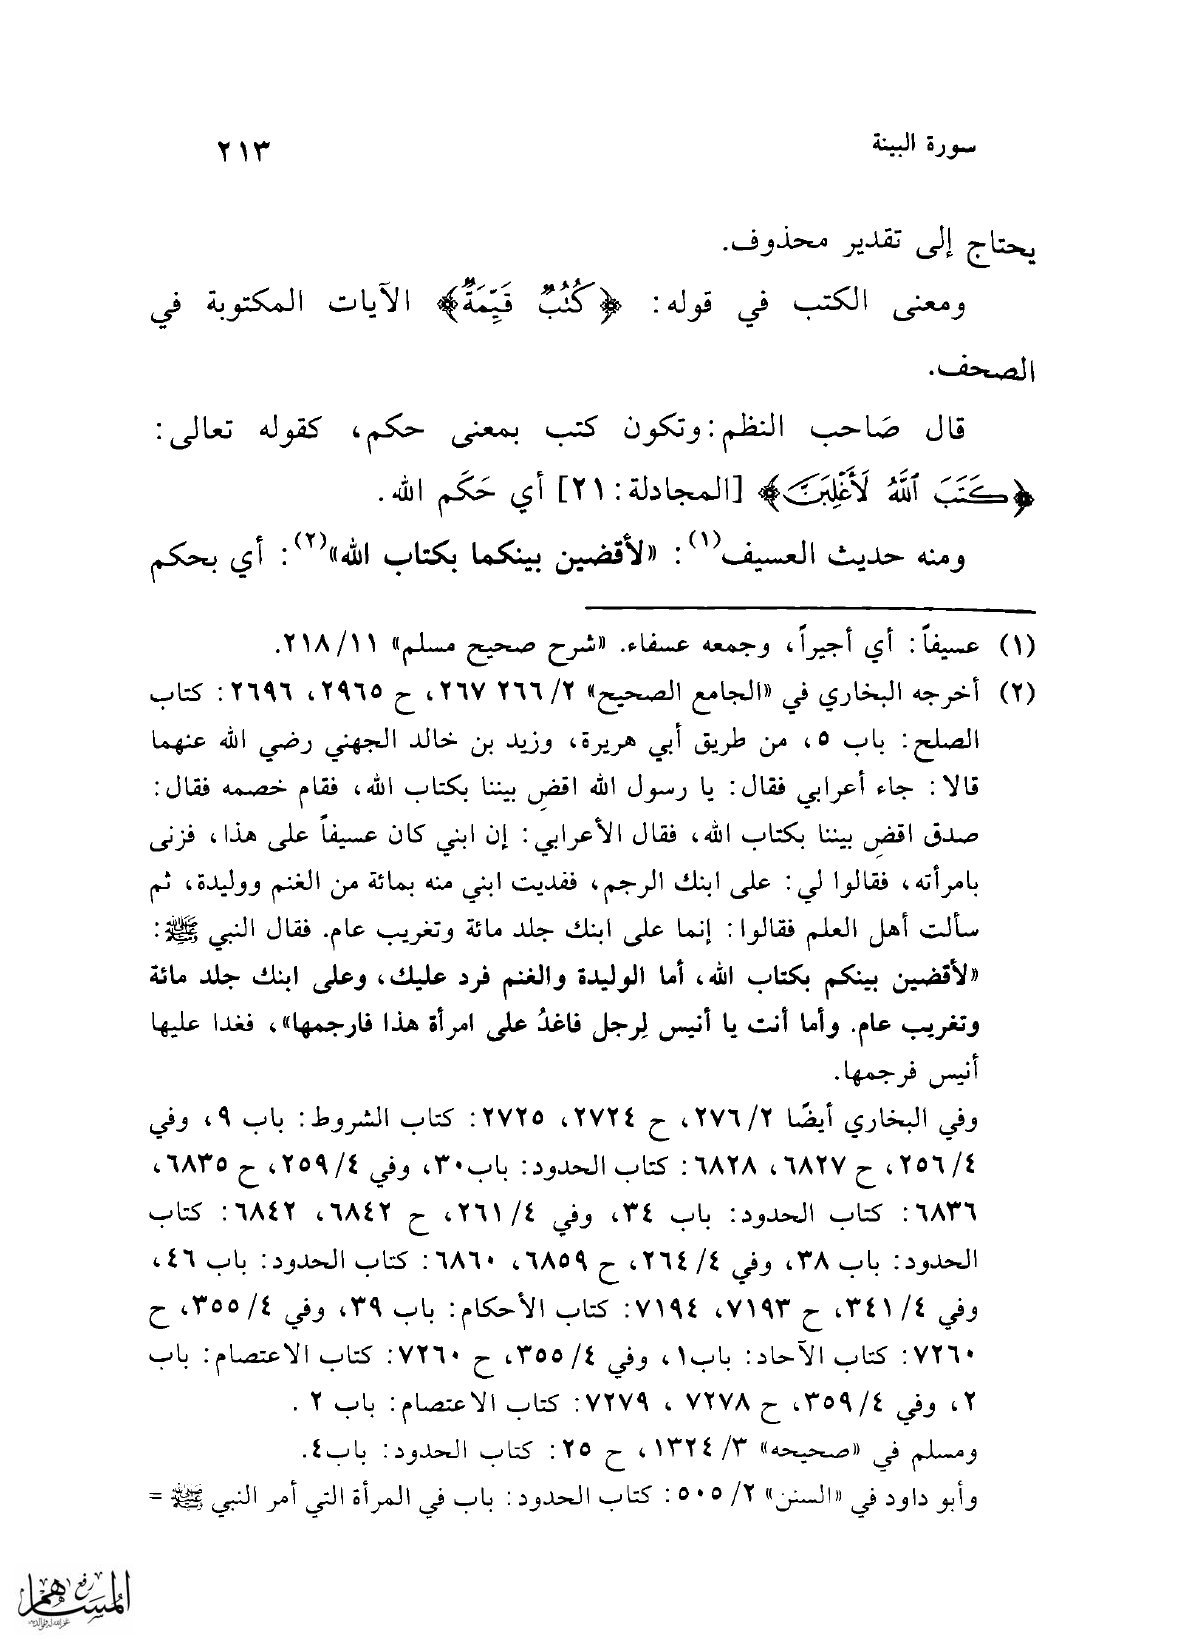 سورة البينة
٢١٣
يحتاج إلى تقدير محذوف.
ومعنى الكتب في قوله: ﴿كُتُبٌ قَيِّمَةٌ﴾ الآيات المكتوبة في
الصحف.
قال صَاحب النظم: وتكون كتب بمعنى حكم، كقوله تعالى:
﴿كَتَبَ ٱللَّهُ لَأَغْلِبَنَّ﴾ [المجادلة: ٢١] أي حَكَم الله.
ومنه حديث العسيف(١): «لأقضين بينكما بكتاب الله»(٢): أي بحكم
(١) عسيفاً: أي أجيراً، وجمعه عسفاء. «شرح صحيح مسلم» ١١/ ٢١٨.
(٢) أخرجه البخاري في «الجامع الصحيح» ٢/ ٢٦٦ ٢٦٧، ح ٢٩٦٥، ٢٦٩٦: كتاب
الصلح: باب ٥، من طريق أبي هريرة، وزيد بن خالد الجهني رضي الله عنهما
قالا: جاء أعرابي فقال: يا رسول الله اقضِ بيننا بكتاب الله، فقام خصمه فقال:
صدق اقضِ بيننا بكتاب الله، فقال الأعرابي: إن ابني كان عسيفاً على هذا، فزنى
بامرأته، فقالوا لي: على ابنك الرجم، ففديت ابني منه بمائة من الغنم ووليدة، ثم
سألت أهل العلم فقالوا: إنما على ابنك جلد مائة وتغريب عام. فقال النبي ﷺ:
«لأقضين بينكم بكتاب الله، أما الوليدة والغنم فرد عليك، وعلى ابنك جلد مائة
وتغريب عام. وأما أنت يا أنيس لِرجل فاغدُ على امرأة هذا فارجمها»، فغدا عليها
أنيس فرجمها.
وفي البخاري أيضًا ٢/ ٢٧٦، ح ٢٧٢٤، ٢٧٢٥: كتاب الشروط: باب ٩، وفي
٤/ ٢٥٦، ح ٦٨٢٧، ٦٨٢٨: كتاب الحدود: باب٣٠، وفي ٤/ ٢٥٩، ح ٦٨٣٥،
٦٨٣٦: كتاب الحدود: باب ٣٤، وفي ٤/ ٢٦١، ح ٦٨٤٢، ٦٨٤٢: كتاب
الحدود: باب ٣٨، وفي ٤/ ٢٦٤، ح ٦٨٥٩، ٦٨٦٠: كتاب الحدود: باب ٤٦،
وفي ٤/ ٣٤١، ح ٧١٩٣، ٧١٩٤: كتاب الأحكام: باب ٣٩، وفي ٤/ ٣٥٥، ح
٧٢٦٠: كتاب الآحاد: باب١، وفي ٤/ ٣٥٥، ح ٧٢٦٠: كتاب الاعتصام: باب
٢، وفي ٤/ ٣٥٩، ح ٧٢٧٨ ، ٧٢٧٩: كتاب الاعتصام: باب ٢ .
ومسلم في «صحيحه» ٣/ ١٣٢٤، ح ٢٥: كتاب الحدود: باب٤.
وأبو داود في «السنن» ٢/ ٥٠٥: كتاب الحدود: باب في المرأة التي أمر النبي ﷺ =